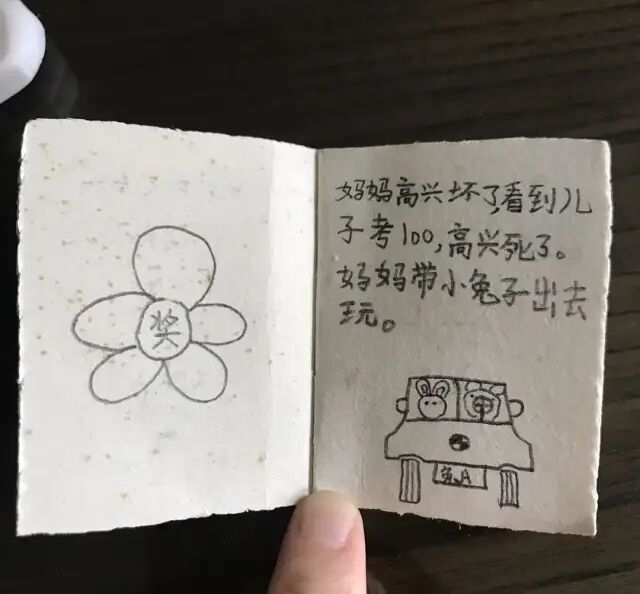 奖
妈妈高兴坏了,看到儿
子考100,高兴死了。
妈妈带小兔子出去
玩。